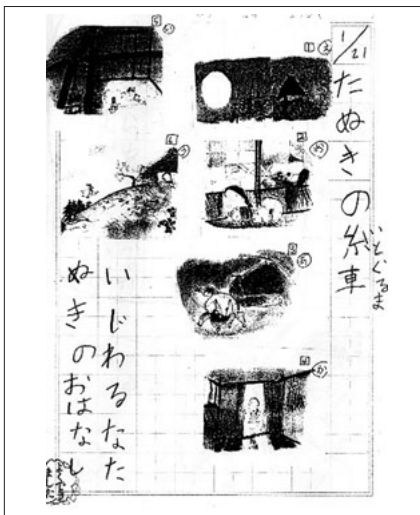 1/21
たぬきの糸車
いとぐるま
いじわるなた
ぬきのおはなし